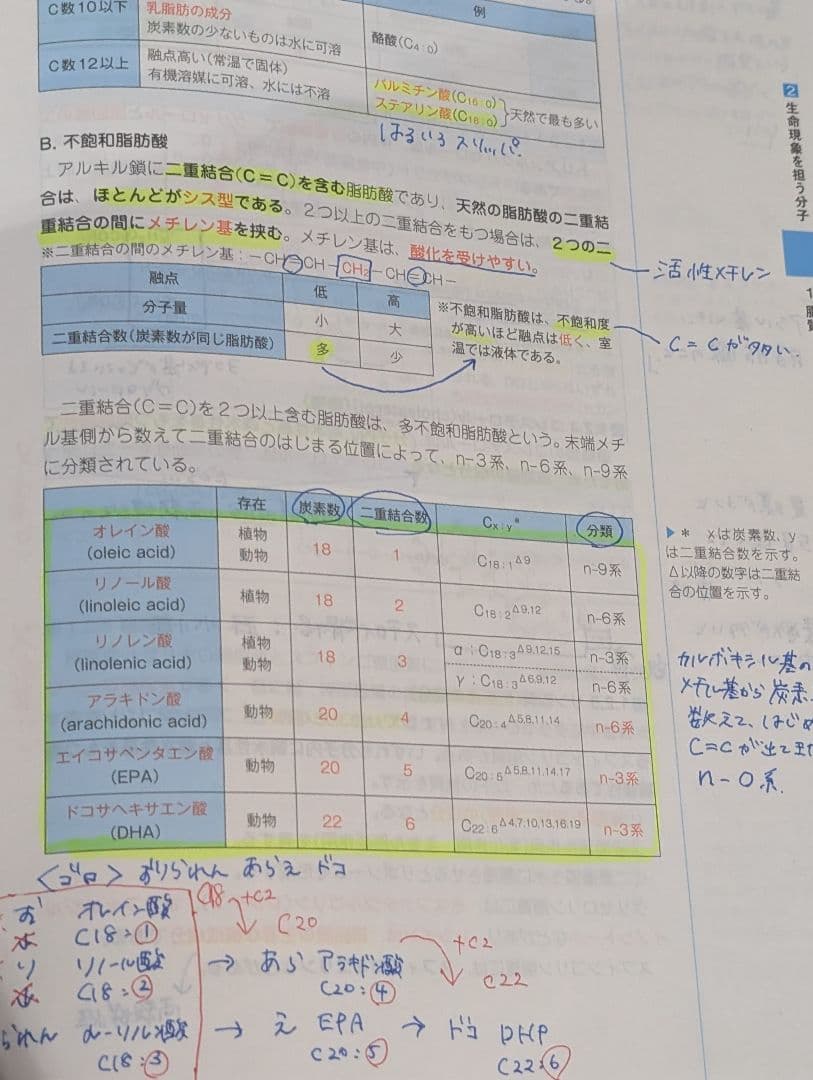 C数10以下
乳脂肪の成分
炭素数の少ないものは水に可溶
例
酪酸(C4:0)
C数12以上
融点高い(常温で固体)
有機溶媒に可溶、水には不溶
パルミチン酸(C16:0)
ステアリン酸(C18:0)
天然で最も多い
はるいろ スリッパ
B. 不飽和脂肪酸
アルキル鎖に二重結合(C=C)を含む脂肪酸であり、天然の脂肪酸の二重結
合は、ほとんどがシス型である。2つ以上の二重結合をもつ場合は、2つの二
重結合の間にメチレン基を挟む。メチレン基は、酸化を受けやすい。
活性メチレン
※二重結合の間のメチレン基:-CH=CH-CH2-CH=CH-
融点 低 高
分子量 小 大
二重結合数(炭素数が同じ脂肪酸) 多 少
※不飽和脂肪酸は、不飽和度
が高いほど融点は低く、室
温では液体である。
C=Cがタタい
二重結合(C=C)を2つ以上含む脂肪酸は、多不飽和脂肪酸という。末端メチ
ル基側から数えて二重結合のはじまる位置によって、n-3系、n-6系、n-9系
に分類されている。
存在 炭素数 二重結合数 Cx:y* 分類
オレイン酸
(oleic acid)
植物
動物
18 1 C18:1Δ9 n-9系
リノール酸
(linoleic acid)
植物 18 2 C18:2Δ9,12 n-6系
リノレン酸
(linolenic acid)
植物
動物
18 3
α:C18:3Δ9,12,15 n-3系
γ:C18:3Δ6,9,12 n-6系
アラキドン酸
(arachidonic acid)
動物 20 4 C20:4Δ5,8,11,14 n-6系
エイコサペンタエン酸
(EPA)
動物 20 5 C20:5Δ5,8,11,14,17 n-3系
ドコサヘキサエン酸
(DHA)
動物 22 6 C22:6Δ4,7,10,13,16,19 n-3系
2 生命現象を担う分子
▶* xは炭素数、y
は二重結合数を示す。
Δ以降の数字は二重結
合の位置を示す。
カルボキシル基の
メチル基から炭素
数えて、はじめ
C=Cが出てきた
n-○系.
<ゴロ> おりられん あらえ ドコ
C18 +C2
C20
お オレイン酸
C18:1
り リノール酸 → あら アラキドン酸
C18:2
C20:4
+C2
C22
られん α-リノレン酸 → え EPA → ドコ DHP
C18:3
C20:5
C22:6